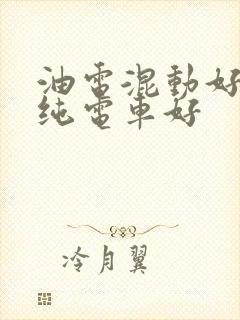 油電混動好
純電車好
冷月翼